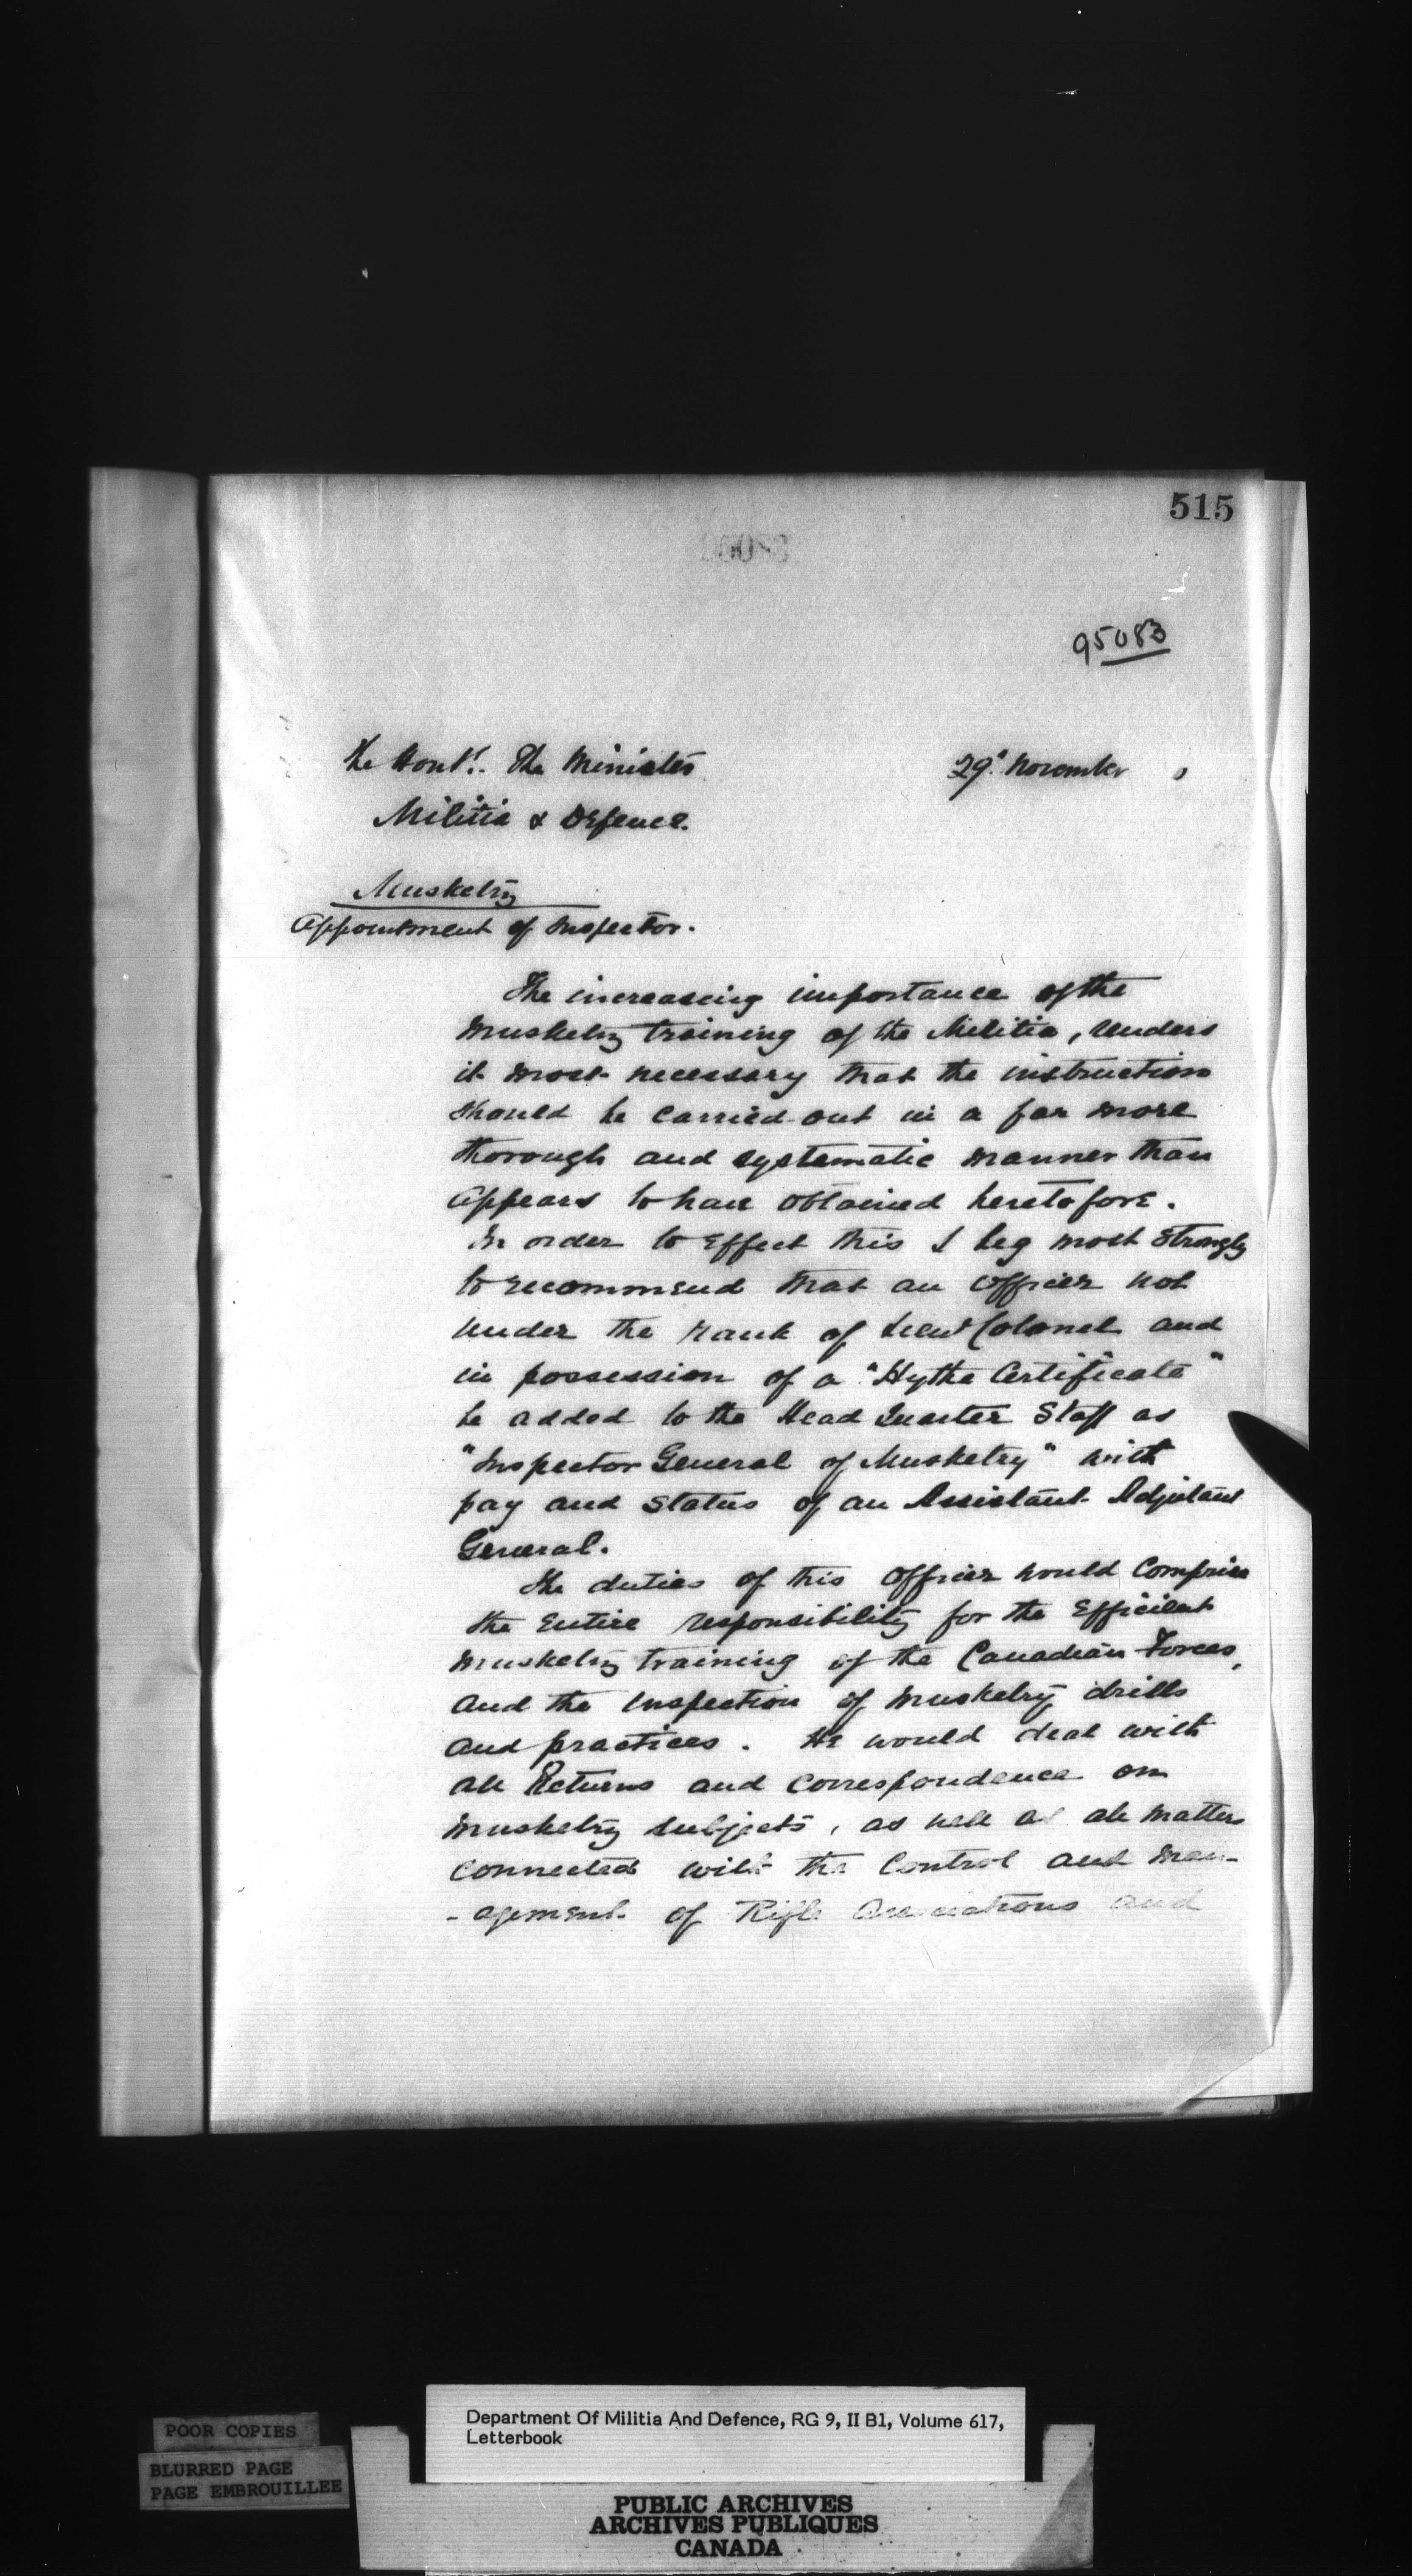 515
95083
The Honbl. The Minister
29th November
Militia & Defence.
Musketry
Appointment of Inspector.
The increasing importance of the
musketry training of the Militia, renders
it most necessary that the instruction
should be carried out in a far more
thorough and systematic manner than
appears to have obtained heretofore.
In order to effect this I beg most strongly
to recommend that an officer not
under the rank of Lieut Colonel and
in possession of a "Hythe Certificate"
be added to the Head Quarter Staff as
"Inspector General of Musketry" with
pay and status of an Assistant Adjutant
General.
The duties of this Officer would comprise
the entire responsibility for the efficient
musketry training of the Canadian Forces,
and the inspection of musketry drills
and practices. He would deal with
all Returns and correspondence on
musketry subjects, as well as all matters
connected with the control and man-
-agement of Rifle Associations and
POOR COPIES
BLURRED PAGE
PAGE EMBROUILLEE
Department Of Militia And Defence, RG 9, II B1, Volume 617,
Letterbook
PUBLIC ARCHIVES
ARCHIVES PUBLIQUES
CANADA